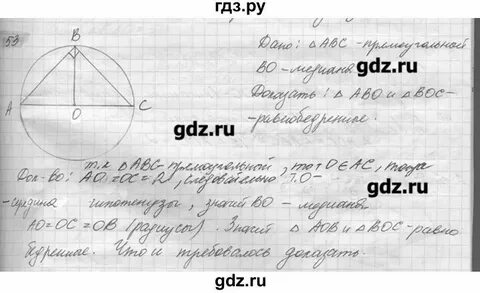 гдз.ру
53
B
A
O
C
Дано: △ABC - прямоугольной
BO - медиана
Доказать: △ABO и △BOC -
- равнобедренные.
гдз.ру
т.к △ABC - прямоугольной, то т O∈AC, тогда
Док-во: AO = OC = R, следовательно т.O -
- середина гипотенузы, значит BO - медиана
AO = OC = OB (радиусы). Значит △AOB и △BOC - равно
бедренные. Что и требовалось доказать.
гдз.ру
гдз.ру